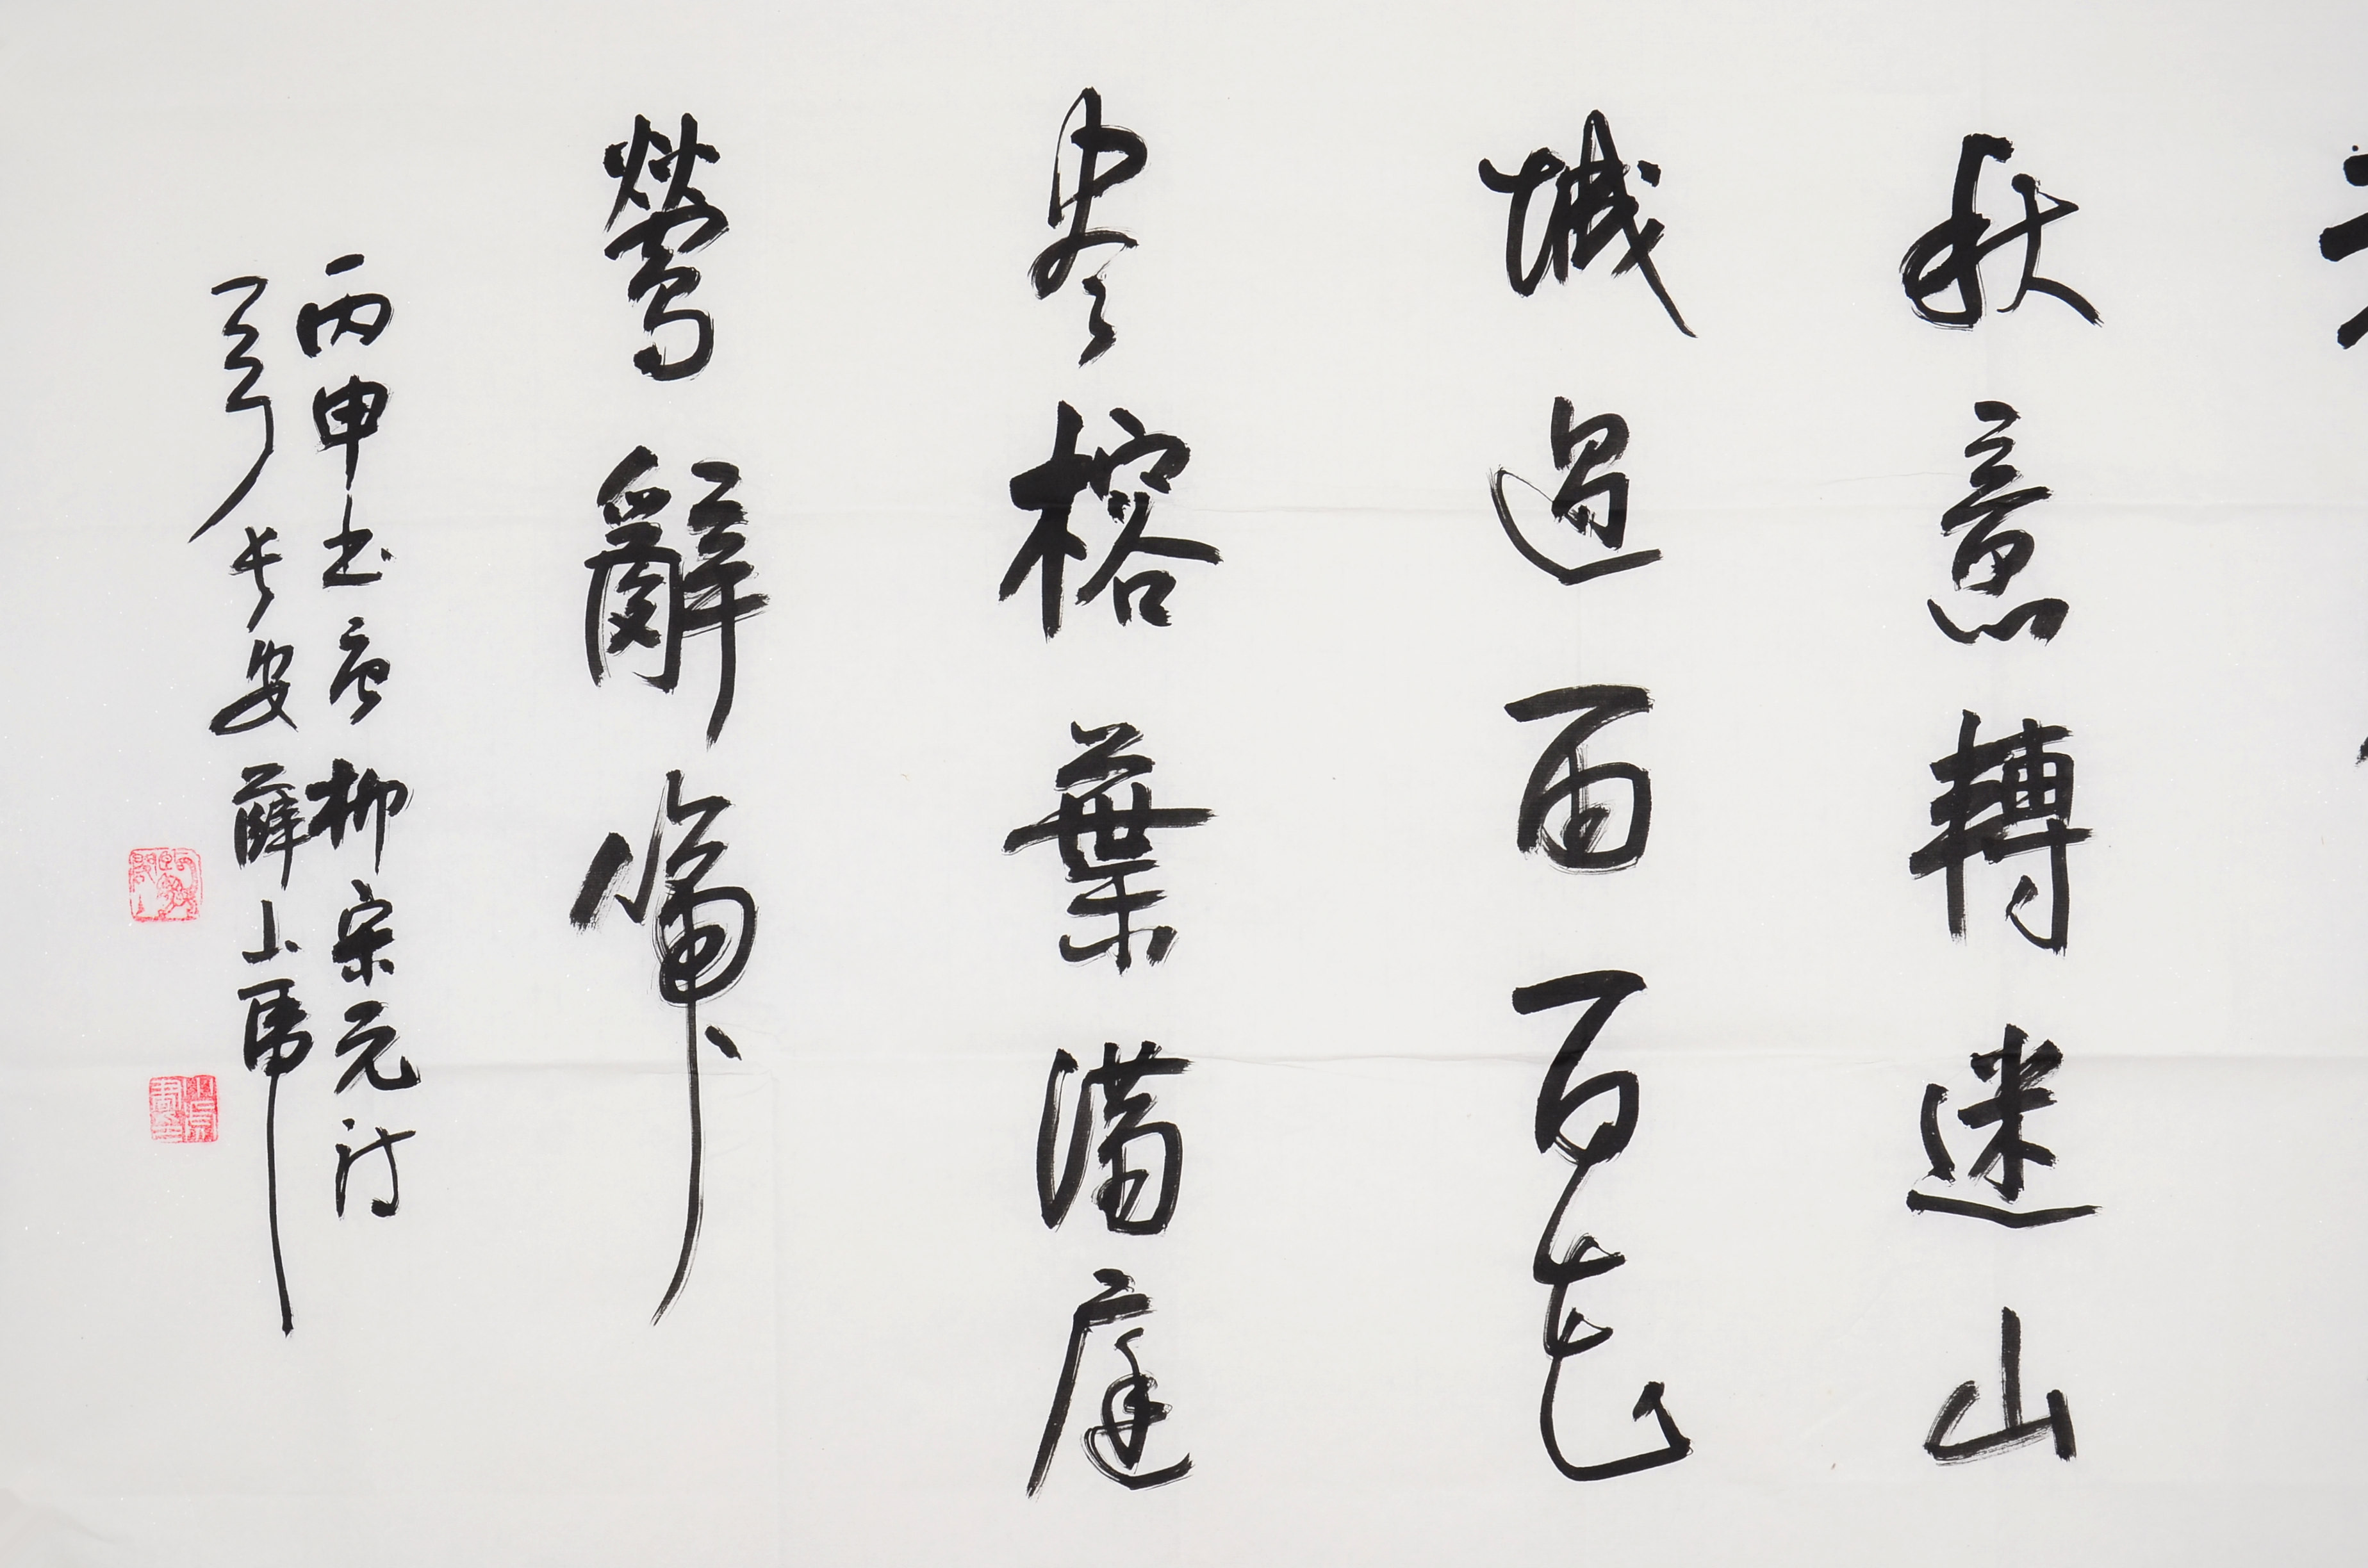 秋意轉迷山
城過雨百花
尽榕葉滿庭
鶯亂啼
丙申書唐柳宗元詩
于長安薛山虎